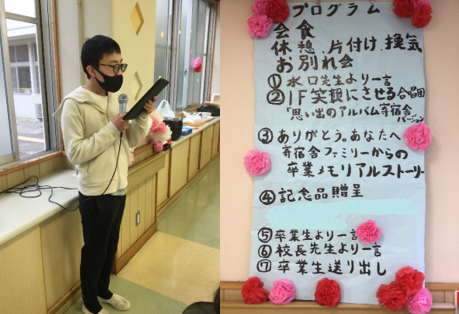 プログラム
会食
休憩、片付け、換気
お別れ会
①水口先生より一言
②1F笑顔にさせる合唱団
「思い出のアルバム寄宿舎
バージョン
③ありがとう。あなたへ
寄宿舎ファミリーからの
卒業メモリアルストーリー
④記念品贈呈
⑤卒業生より一言
⑥校長先生より一言
⑦卒業生送り出し